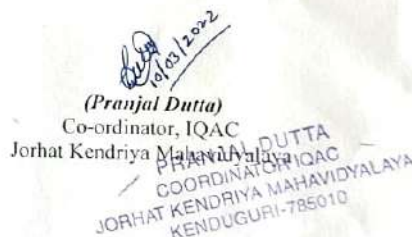 10/03/2022
(Pranjal Dutta)
Co-ordinator, IQAC
Jorhat Kendriya Mahavidyalaya
PRANJAL DUTTA
COORDINATOR IQAC
JORHAT KENDRIYA MAHAVIDYALAYA
KENDUGURI-785010